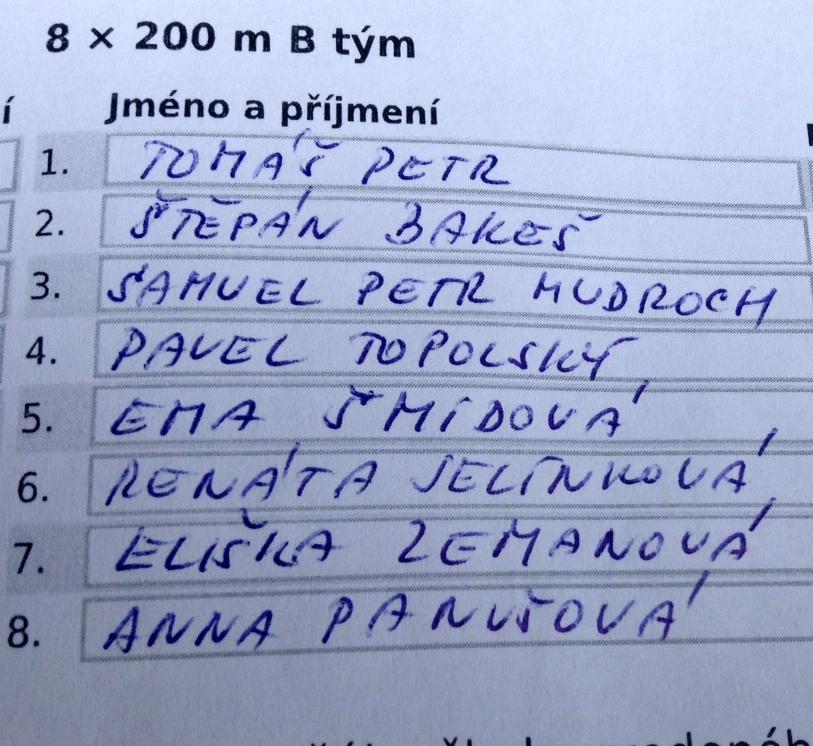 8 × 200 m B tým
Jméno a příjmení
1. TOMÁŠ PETR
2. ŠTĚPÁN BAKEŠ
3. SAMUEL PETR MUDROCH
4. PAVEL TOPOLSKÝ
5. EMA ŠMÍDOVÁ
6. RENÁTA JELÍNKOVÁ
7. ELIŠKA ZEMANOVÁ
8. ANNA PANUŠOVÁ